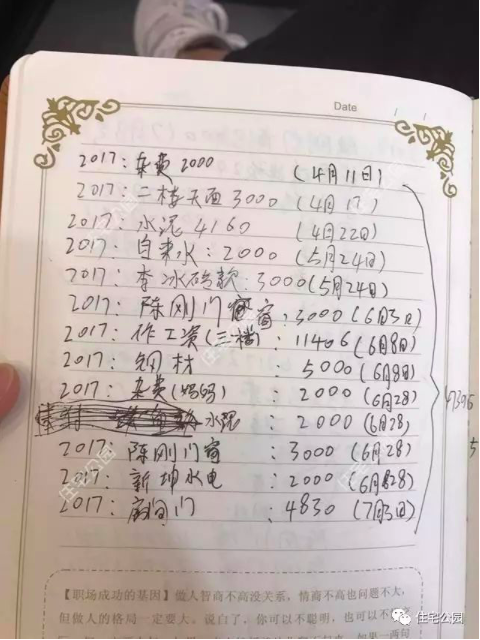 Date / /
2017：杂费 2000 （4月11日）
2017：二楼天面 3000 （4月17）
2017：水泥 4160 （4月22日）
2017：自来水：2000 （5月24日）
2017：李冰砖款：3000（5月24日）
2017：陈刚门窗：3000（6月3日）
2017：作工资（三楼）：11406（6月8日）
2017：钢材：5000（6月8日）
2017：杂费（妈妈）：2000（6月28）
水泥：2000（6月28）
2017：陈刚门窗：3000（6月28）
2017：新坤水电：2000（6月28日）
2017：房间门：4830（7月3日）
【职场成功的基因】做人智商不高没关系，情商不高也问题不大，
但做人的格局一定要大。说白了，你可以不聪明，也可以不
如果一两句
住宅公园